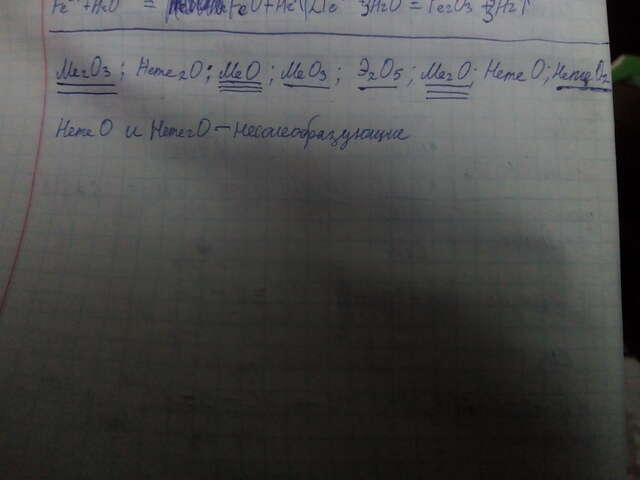 FeO + H2O = FeO + H2 3H2O = Fe2O3 3H2↑
Me2O3; Неме2O; MeO; MeO3; Э2O5; Me2O; Неме O; O2
Неме O и Неме2O — Несолеобразующие